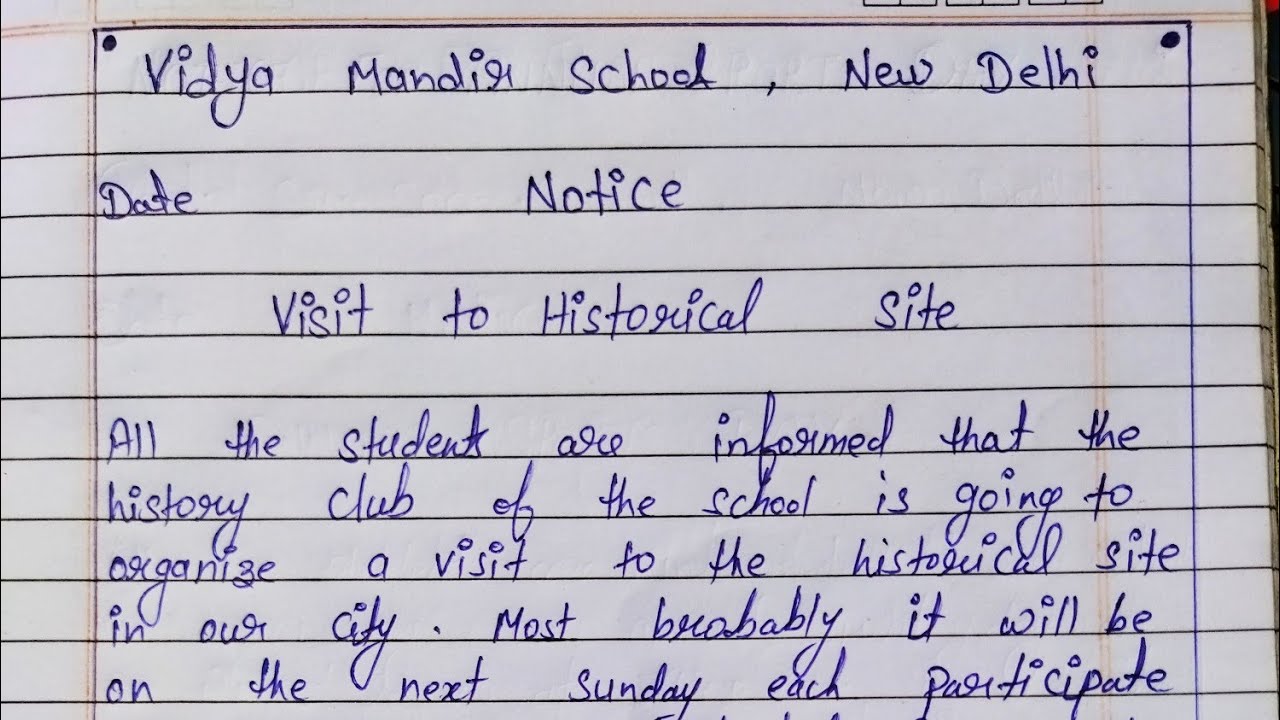 Vidya Mandir School, New Delhi
Date Notice
Visit to Historical Site
All the students are informed that the
history club of the school is going to
organize a visit to the historical site
in our city. Most brobably it will be
on the next sunday each participate